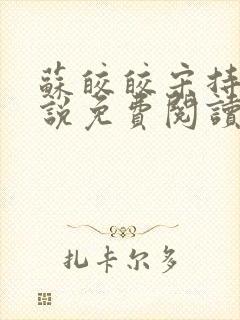 蘇皎皎宋持
說免費閱讀
扎卡尔多